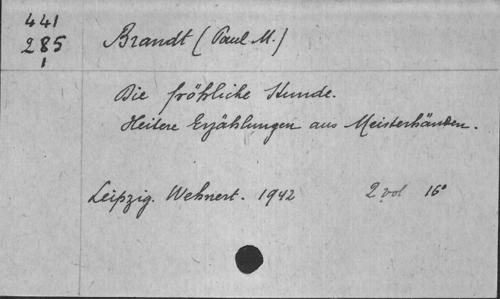 441
285
1
Brandt (Paul M.)
Die fröhliche Stunde.
Heitere Erzählungen aus Meisterhänden.
Leipzig. Wehnert. 1942 2 vol 16°